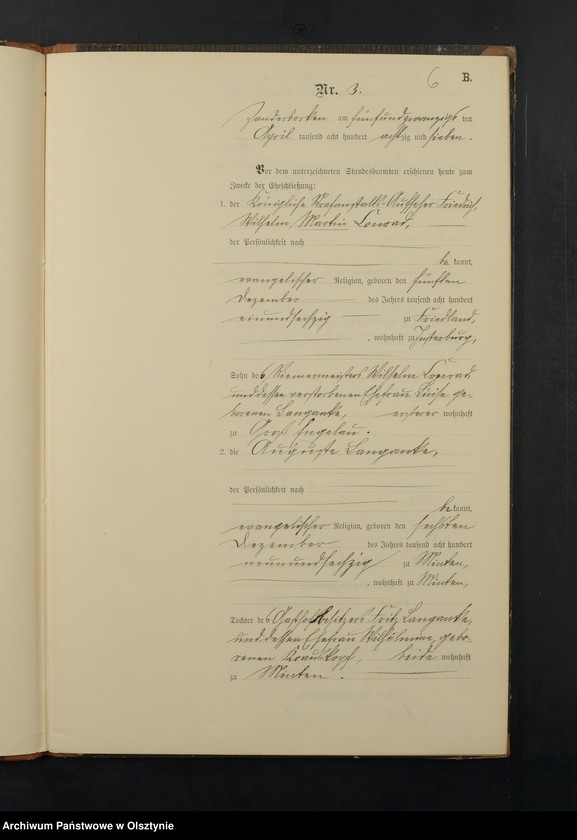 6 B.
Nr. 3.
am fünfundzwanzigsten
April tausend acht hundert achtzig und sieben.
Vor dem unterzeichneten Standesbeamten erschienen heute zum
Zwecke der Eheschließung:
1. der Königliche Strafanstalts-Aufseher Friedrich
Wilhelm, Martin Conrad,
der Persönlichkeit nach
be kannt,
evangelischer Religion, geboren den fünften
Dezember des Jahres tausend acht hundert
einundsechzig zu Friedland,
, wohnhaft zu Insterburg,
Sohn des Riemermeisters Wilhelm Conrad
und dessen verstorbenen Ehefrau Luise ge-
borenen Langanke, ersterer wohnhaft
zu Groß Engelau.
2. die Auguste Langanke,
der Persönlichkeit nach
be kannt,
evangelischer Religion, geboren den sechsten
Dezember des Jahres tausend acht hundert
neunundsechzig zu Minten,
, wohnhaft zu Minten,
Tochter des Gasthofbesitzers Fritz Langanke,
und dessen Ehefrau Wilhelmine, gebo-
renen Krauskopf, beide wohnhaft
zu Minten.
Archiwum Państwowe w Olsztynie